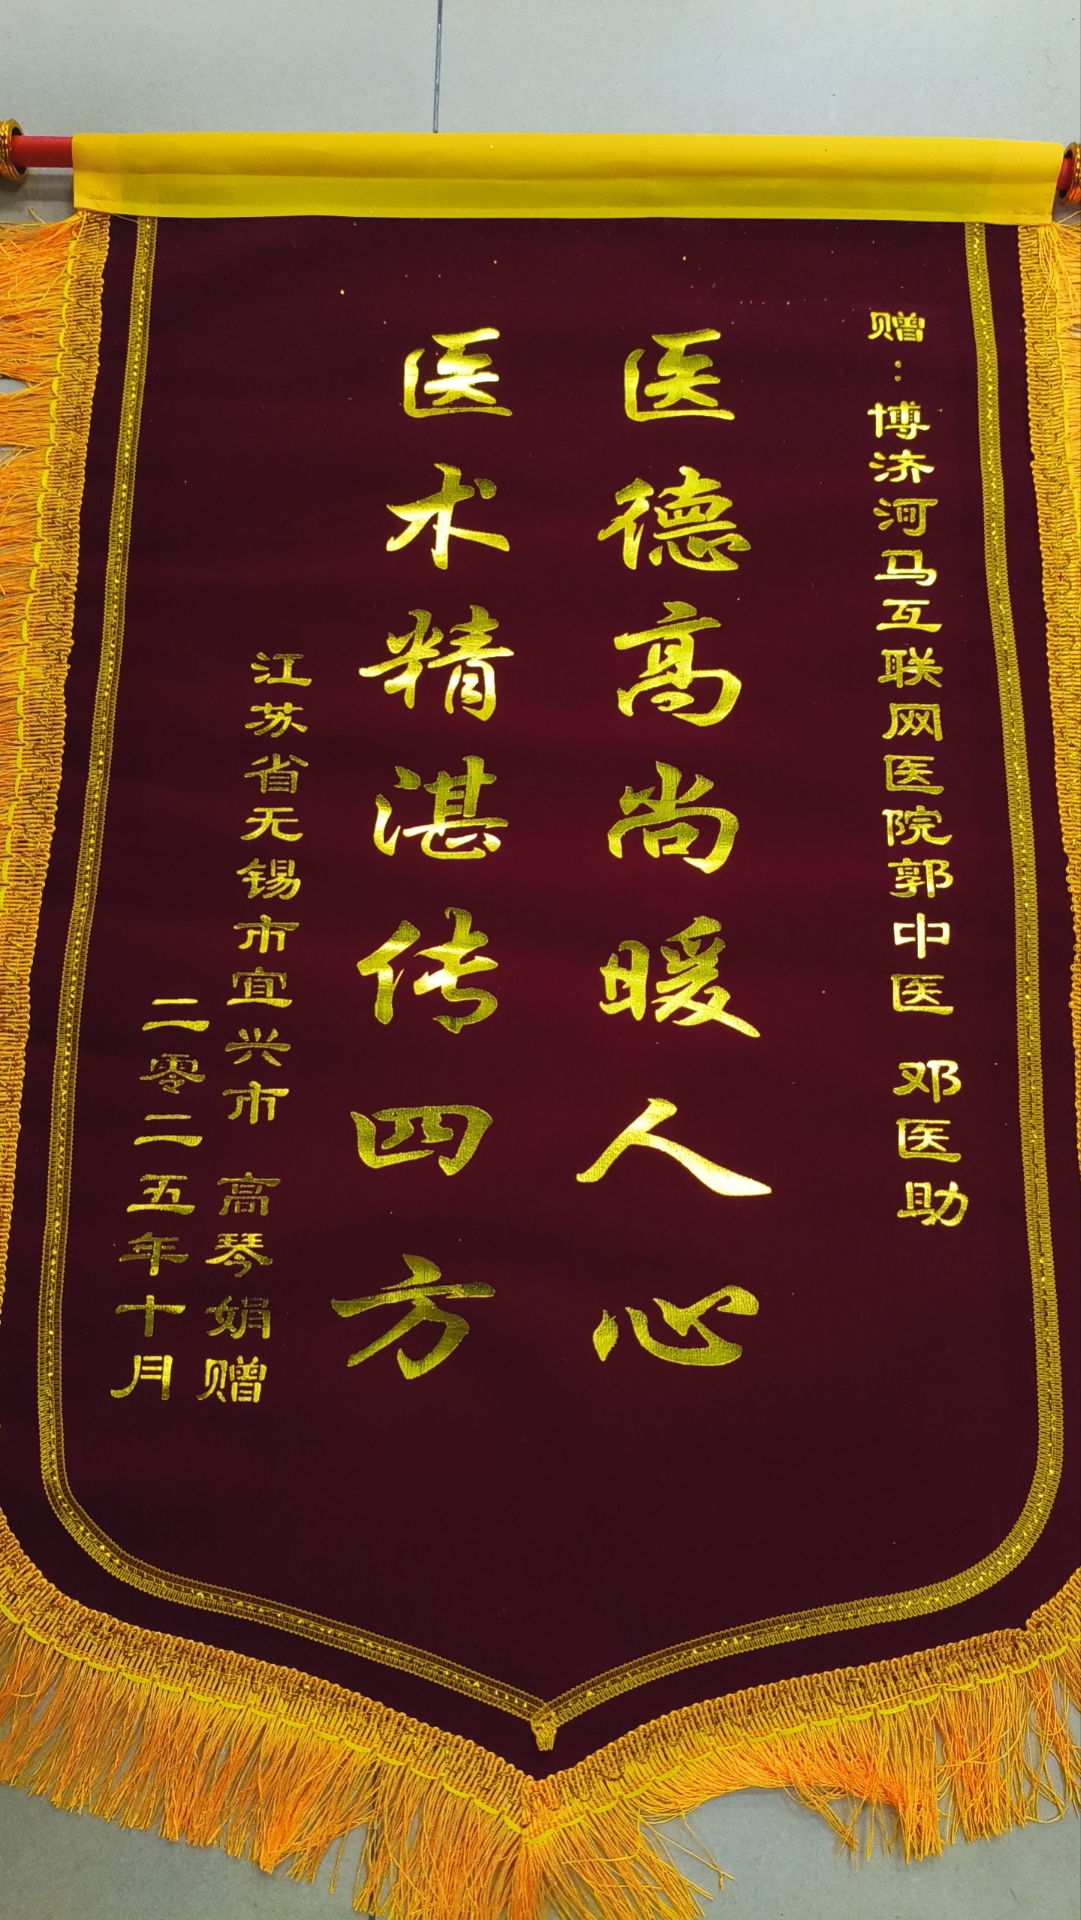 赠：博济河马互联网医院郭中医 邓医助
医德高尚暖人心
医术精湛传四方
江苏省无锡市宜兴市 高琴娟赠
二零二五年十月